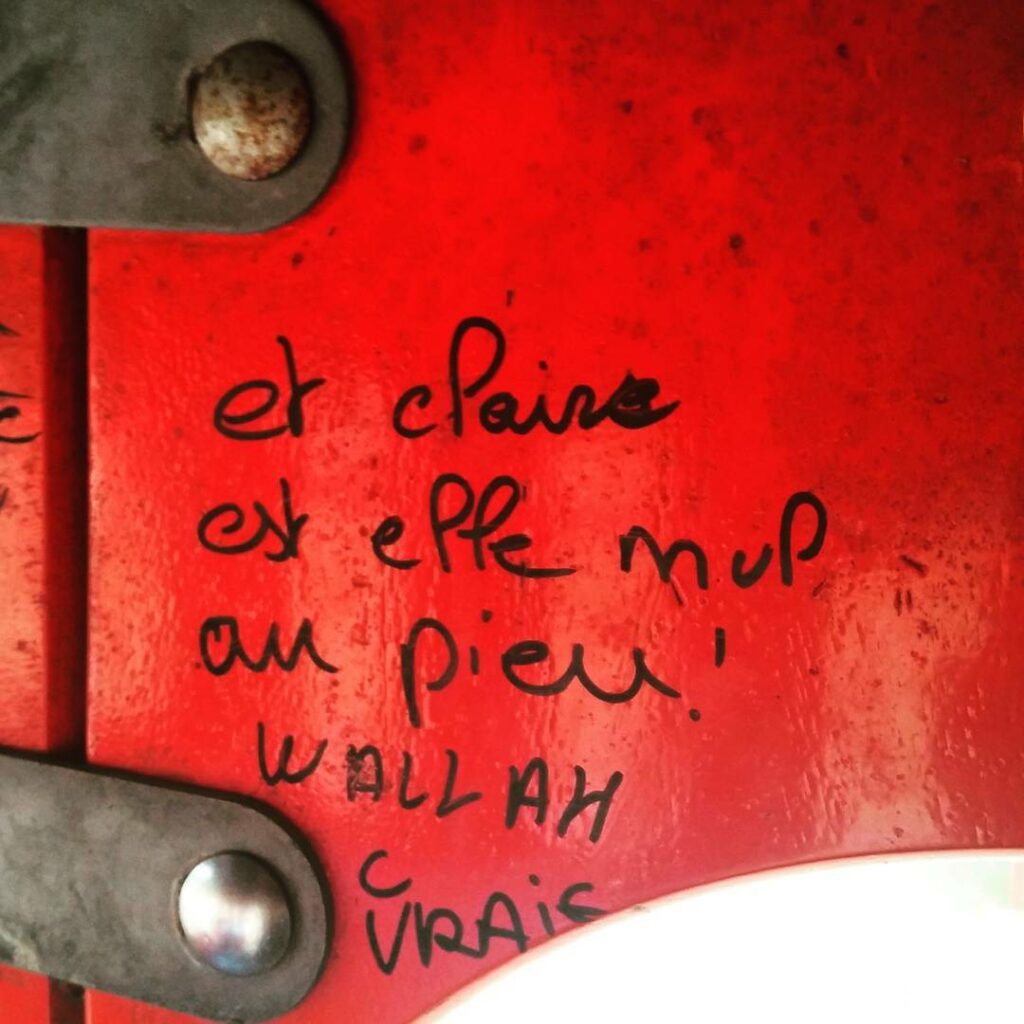 et claire
est elle nul
au pieu !
WALLAH
C
VRAIS